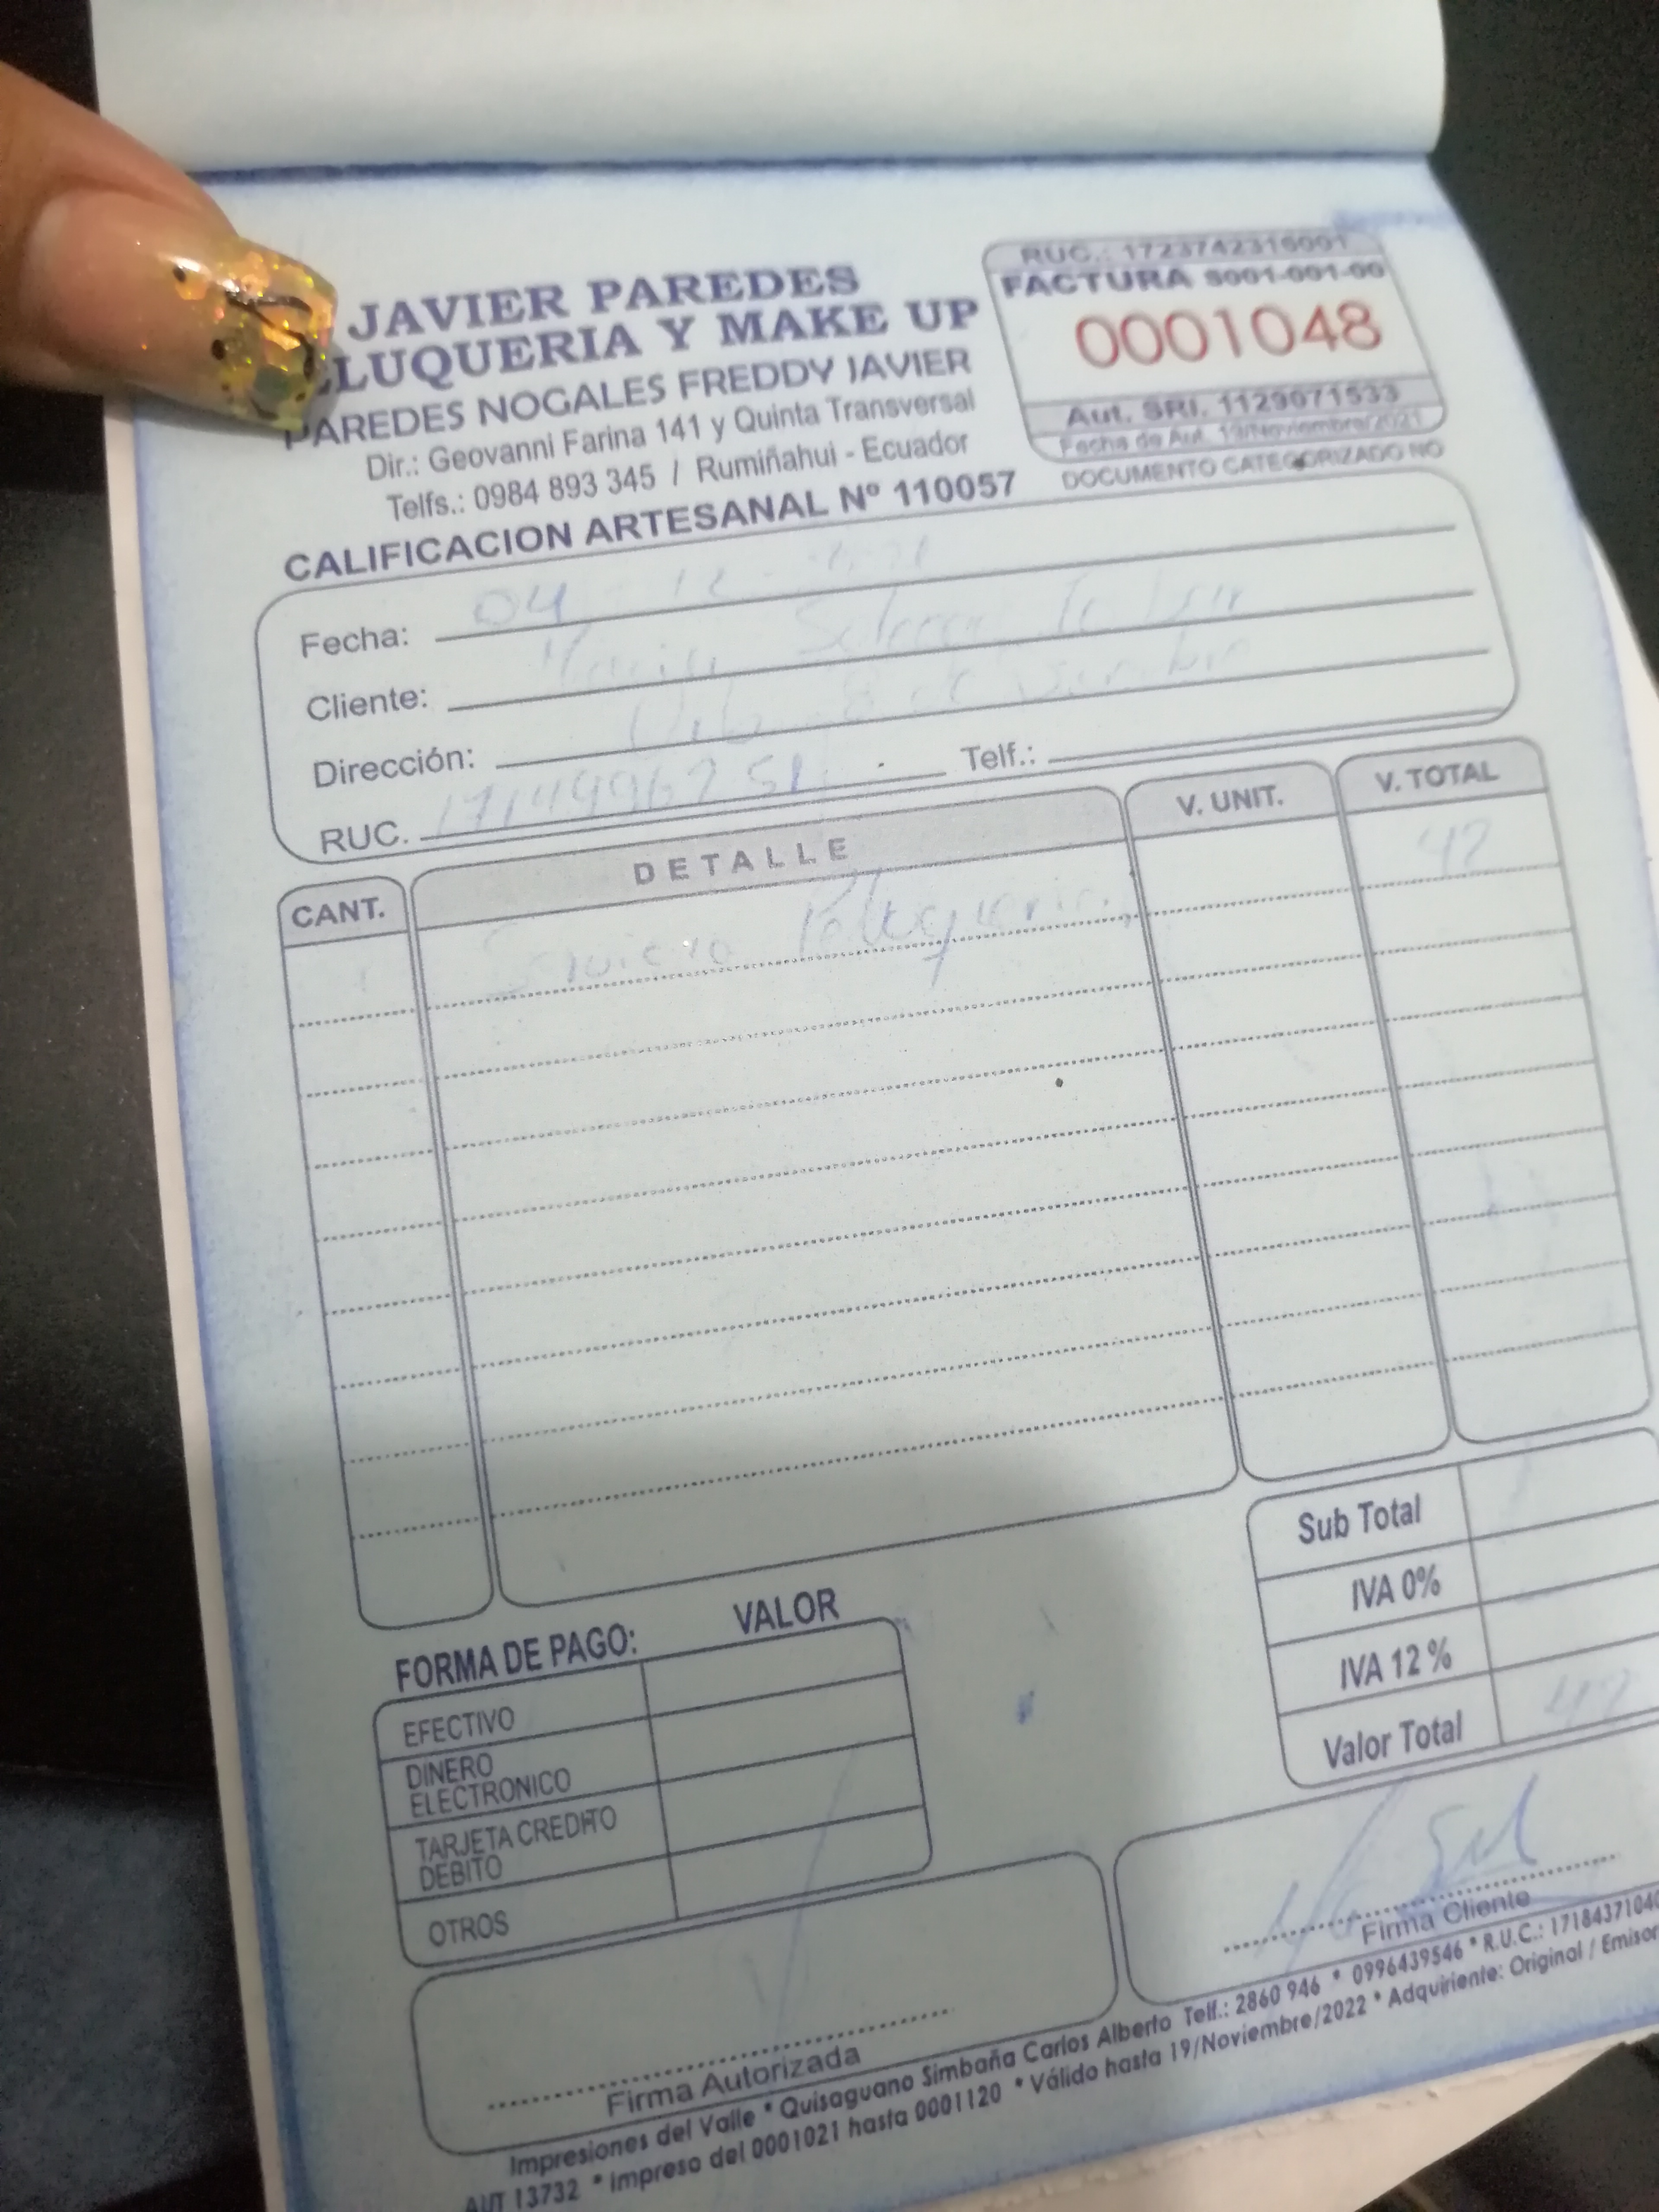 JAVIER PAREDES
LUQUERIA Y MAKE UP
PAREDES NOGALES FREDDY JAVIER
Dir.: Geovanni Farina 141 y Quinta Transversal
Telfs.: 0984 893 345 / Rumiñahui - Ecuador
CALIFICACION ARTESANAL Nº 110057
RUC.: 1723742316001
FACTURA S001-001-00
0001048
Aut. SRI. 1129071533
Fecha de Aut. 19/Noviembre/2021
DOCUMENTO CATEGORIZADO NO
Fecha: 04 - 12 -
Cliente: Maria
Dirección: Urb 8 de
Telf.:
RUC. 1714996251
CANT. DETALLE V. UNIT. V. TOTAL
1 Servicio Peluqueria 47
Sub Total
IVA 0%
IVA 12 %
Valor Total 47
FORMA DE PAGO: VALOR
EFECTIVO
DINERO
ELECTRONICO
TARJETA CREDITO
DEBITO
OTROS
Firma Autorizada
Firma Cliente
Impresiones del Valle * Quisaguano Simbaña Carlos Alberto Telf.: 2860 946 * 0996439546 * R.U.C.: 1718437104
AUT 13732 * Impreso del 0001021 hasta 0001120 * Válido hasta 19/Noviembre/2022 * Adquiriente: Original / Emisor